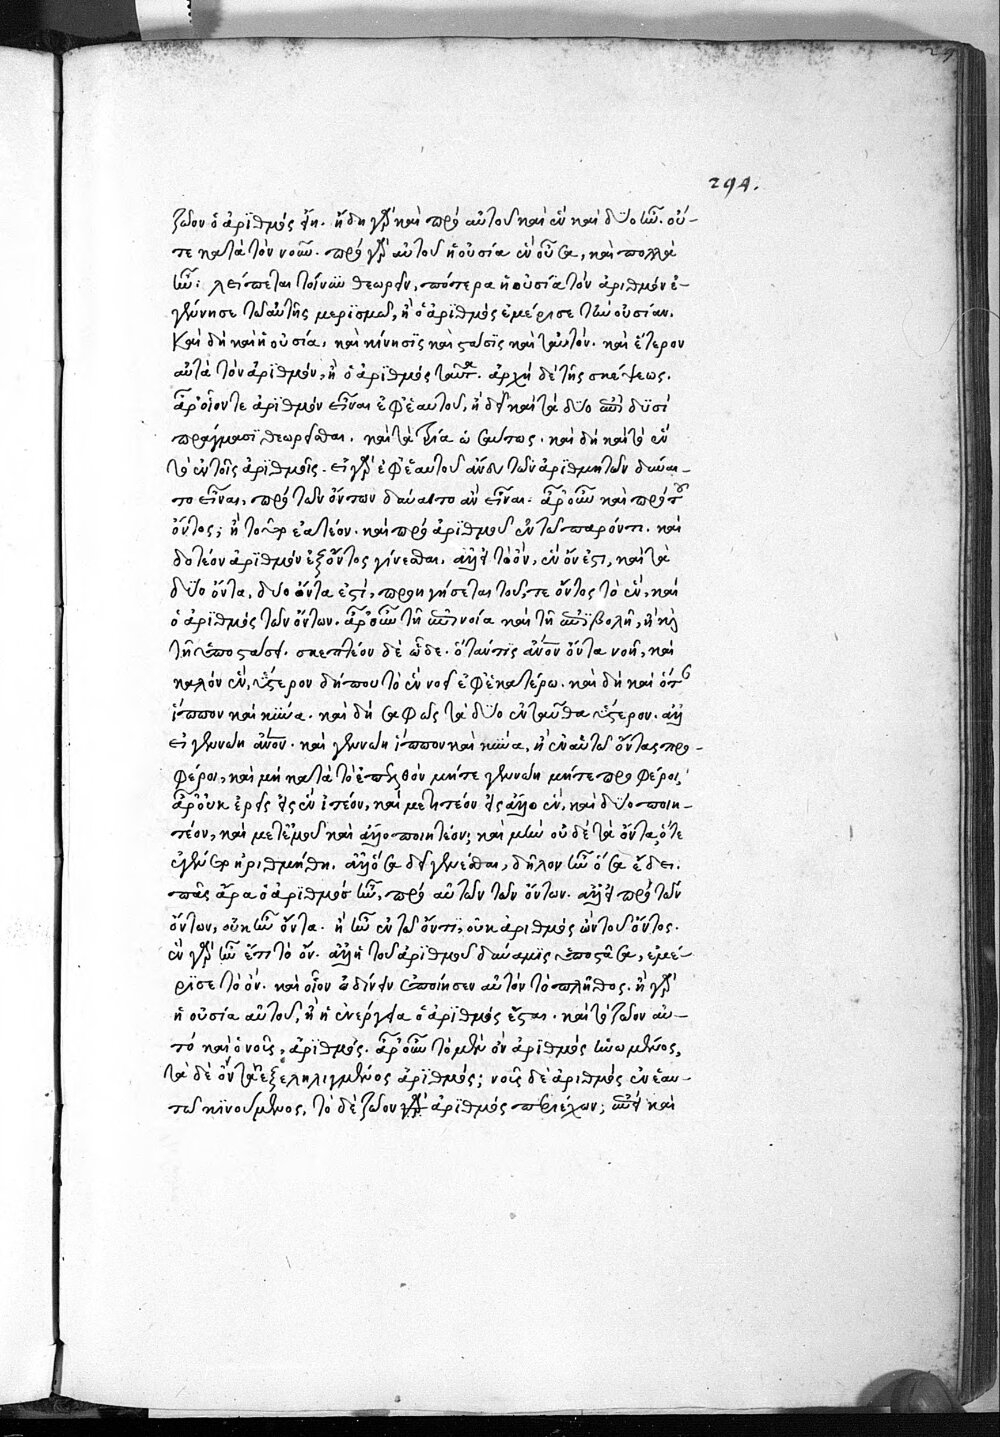 294.
ζῷον ὁ ἀρϊθμός ἔτι. ἤδη γὰρ καὶ πρὸ αὐτοῦ καὶ ἓν καὶ δύο ἦν. οὔ-
τε κατὰ τὸν νοῦν. πρὸ γὰρ αὐτοῦ ἡ οὐσία ἓν οὖσα, καὶ πολλὰ
ἦν: λείπεται τοίνυν θεωρεῖν, πότερα ἡ οὐσία τὸν ἀριθμὸν ἐ-
γέννησε τῷ αὐτῆς μερϊσμῷ, ἢ ὁ ἀριθμὸς ἐμέρισε τὴν οὐσίαν.
Καὶ δὴ καὶ ἡ οὐσία, καὶ κίνησϊς καὶ στάσϊς καὶ ταὐτὸν. καὶ ἕτερον
αὐτὰ τὸν ἀρϊθμόν, ἢ ὁ ἀρϊθμὸς ταῦτα. ἀρχὴ δὲ τῆς σκέψεως.
ἆρ' οἷόντε ἀρϊθμὸν εἶναι ἐφ' ἑαυτοῦ, ἢ δεῖ καὶ τὰ δύο ἐπὶ δϋσὶ
πράγμασϊ θεωρεῖσθαι. καὶ τὰ τρία ὡσαύτως. καὶ δὴ καὶ τὸ ἓν
τὸ ἐν τοῖς ἀρϊθμοῖς. εἰ γὰρ ἐφ' ἑαυτοῦ ἄνευ τῶν ἀρϊθμητῶν δύναι-
το εἶναι, πρὸ τῶν ὄντων δύναιτο ἂν εἶναι. ἆρ' οὖν καὶ πρὸ τοῦ
ὄντος; ἢ τοῦτο ἐατέον. καὶ πρὸ ἀρϊθμοῦ ἐν τῷ παρόντι. καὶ
δοτέον ἀρϊθμὸν ἐξ ὄντος γίνεσθαι. ἀλλ' εἰ τὸ ὂν, ἓν ὄν ἐστι, καὶ τὰ
δύο ὄντα, δύο ὄντα ἐστὶ, προηγήσεται τοῦ, τε ὄντος τὸ ἓν, καὶ
ὁ ἀριθμὸς τῶν ὄντων. ἆρ' οὖν τῇ ἐπινοίᾳ καὶ τῇ ἐπϊβολῇ, ἢ καὶ
τῇ ὑποστάσει. σκεπτέον δὲ ὧδε. ὅταν τις ἄνθρωπον ὄντα νοῇ, καὶ
καλὸν ἓν, ὕστερον δήπου τὸ ἓν νοεῖ ἐφ' ἑκατέρῳ. καὶ δὴ καὶ ὅταν
ἵππον καὶ κύνα. καὶ δὴ σαφῶς τὰ δύο ἐνταῦθα ὕστερον. ἀλλ'
εἰ γεννῴη ἄνθρωπον. καὶ γεννῴη ἵππον καὶ κύνα, ἢ ἐν αὑτῷ ὄντας προ-
φέροι, καὶ μὴ κατὰ τὸ ἐπελθὸν μήτε γεννῴη μήτε προφέροι,
ἆρ' οὐκ ἐρεῖ εἰς ἓν ἰτέον, καὶ μετιτέον εἰς ἄλλο ἓν, καὶ δύο ποιη-
τέον, καὶ μετ' ἐμοῦ καὶ ἄλλο ποιητέον; καὶ μὴν οὐδὲ τὰ ὄντα, ὅτε
ἐγένετο ἠριθμήθη. ἀλλ' ὅσα δεῖ γενέσθαι, δῆλον ἦν ὅσα ἔδει.
πᾶς ἄρα ὁ ἀρϊθμὸς ἦν, πρὸ αὐτῶν τῶν ὄντων. ἀλλ' εἰ πρὸ τῶν
ὄντων, οὐκ ἦν ὄντα. ἢ ἦν ἐν τῷ ὄντι, οὐκ ἀριθμὸς ὢν τοῦ ὄντος.
ἓν γὰρ ἦν ἔτι τὸ ὄν. ἀλλ' ἡ τοῦ ἀρϊθμοῦ δύναμϊς ὑποστᾶσα, ἐμέ-
ρϊσε τὸ ὄν. καὶ οἷον ὠδίνειν ἐποίησεν αὐτὸν τὸ πλῆθος. ἢ γὰρ
ἡ οὐσία αὐτοῦ, ἢ ἡ ἐνέργεια ὁ ἀριθμὸς ἔσται. καὶ τὸ ζῷον αὐ-
τὸ καὶ ὁ νοῦς, ἀρϊθμός. ἆρ' οὖν τὸ μὲν ὂν ἀρϊθμὸς ἡνωμένος,
τὰ δὲ ὄντα ἐξεληλιγμένος ἀρϊθμός; νοῦς δὲ ἀριθμὸς ἐν ἑαυ-
τῷ κϊνούμενος, τὸ δὲ ζῷον ἀρϊθμὸς περιέχων; ἐπεὶ καὶ